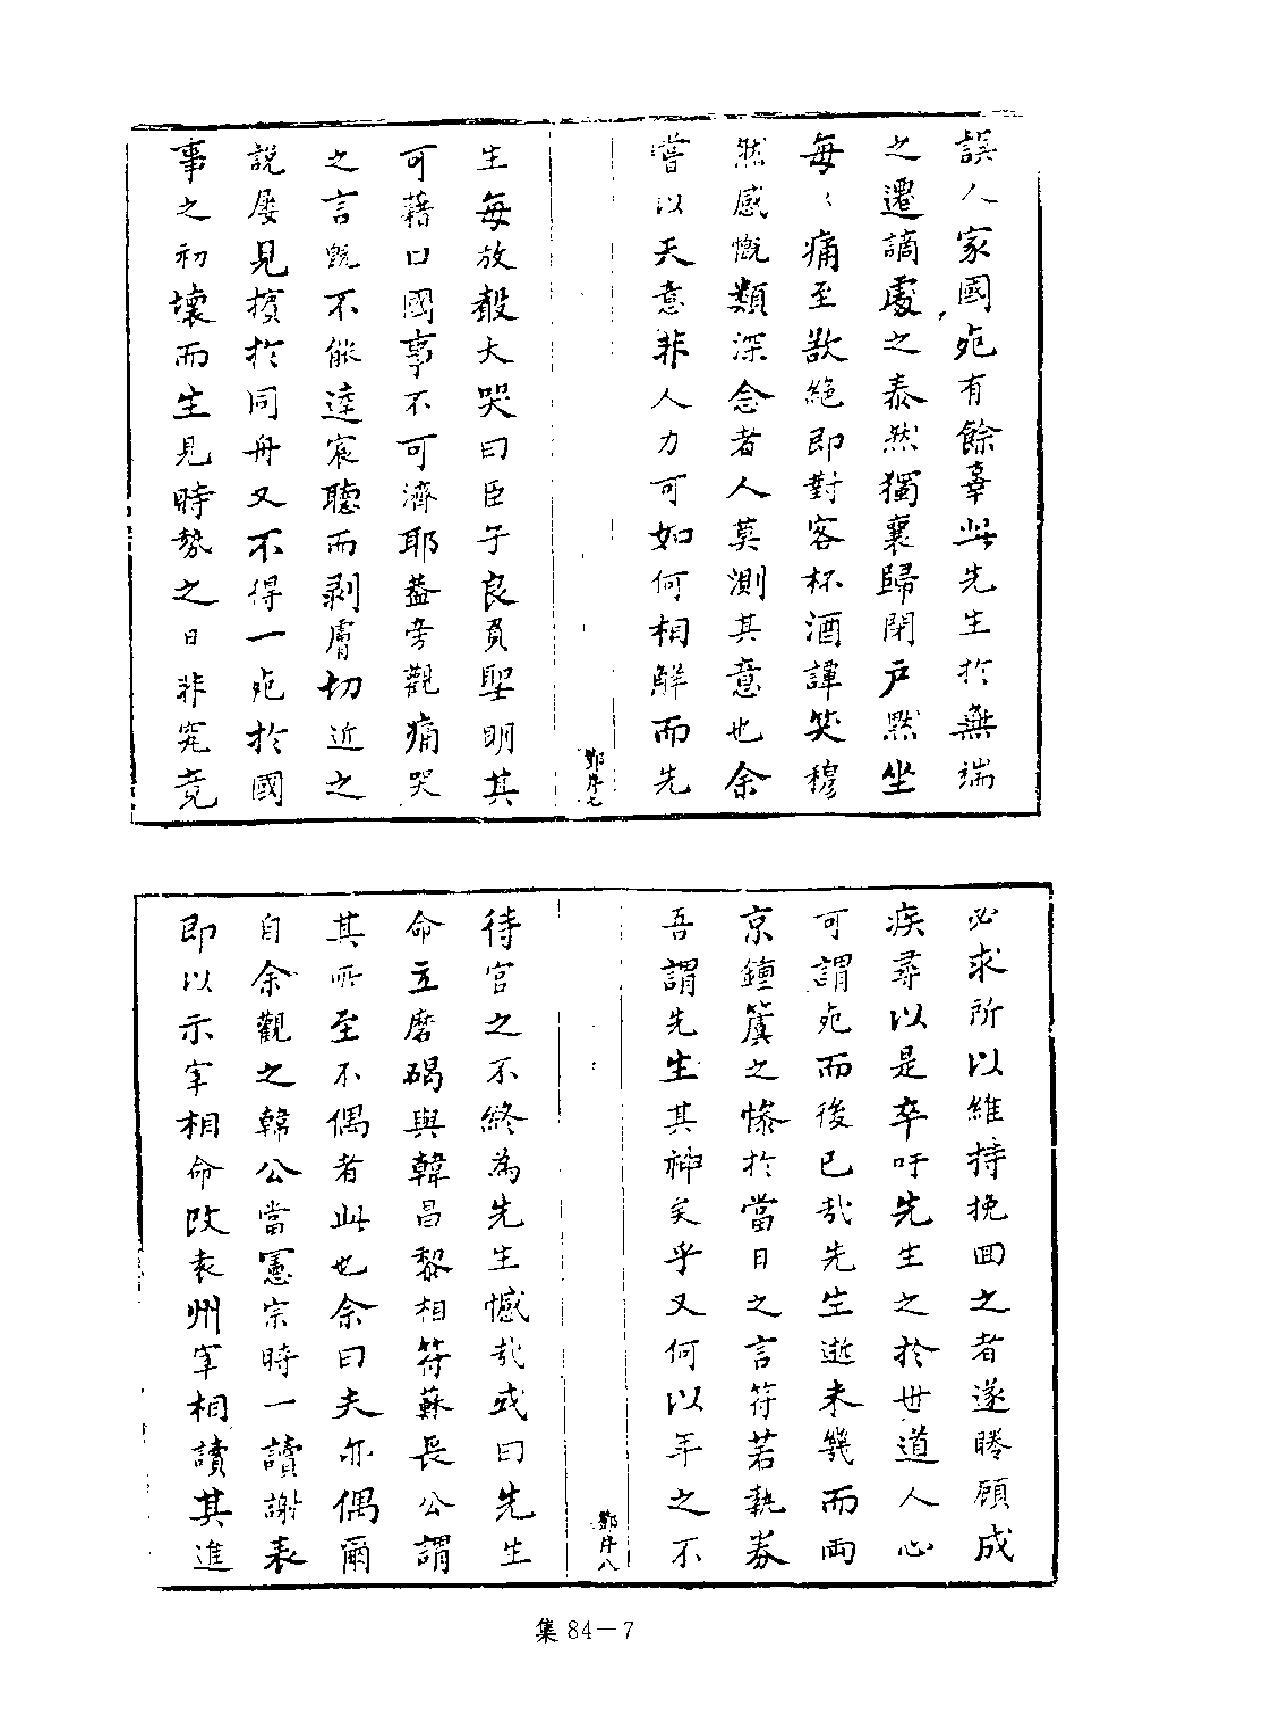 誤人家國死有餘辜此先生於無端
之遷謫處之泰然獨襄歸閉户默坐
每〻痛至欷絕即對客杯酒譚笑穆
然感慨類深念者人莫測其意也余
嘗以天意非人力可如何相解而先
鄧序七
生每放聲大哭曰臣子良負聖明其
可藉口國事不可濟耶蓋旁觀痛哭
之言既不能達宸聽而剥膚切近之
說屡見擯於同舟又不得一死於國
事之初壞而生見時勢之日非究竟
必求所以維持挽囬之者遂瞻顧成
疾尋以是卒吁先生之於世道人心
可謂死而後已哉先生逝未幾而兩
京鐘簴之慘於當日之言符若執券
吾謂先生其神矣乎又何以年之不
鄧序八
待宫之不終為先生憾哉或曰先生
命立磨碣與韓昌黎相符蘇長公謂
其所至不偶者此也余曰夫亦偶爾
自余觀之韓公當憲宗時一讀謝表
即以示宰相命改袁州宰相讀其進
集 84－7